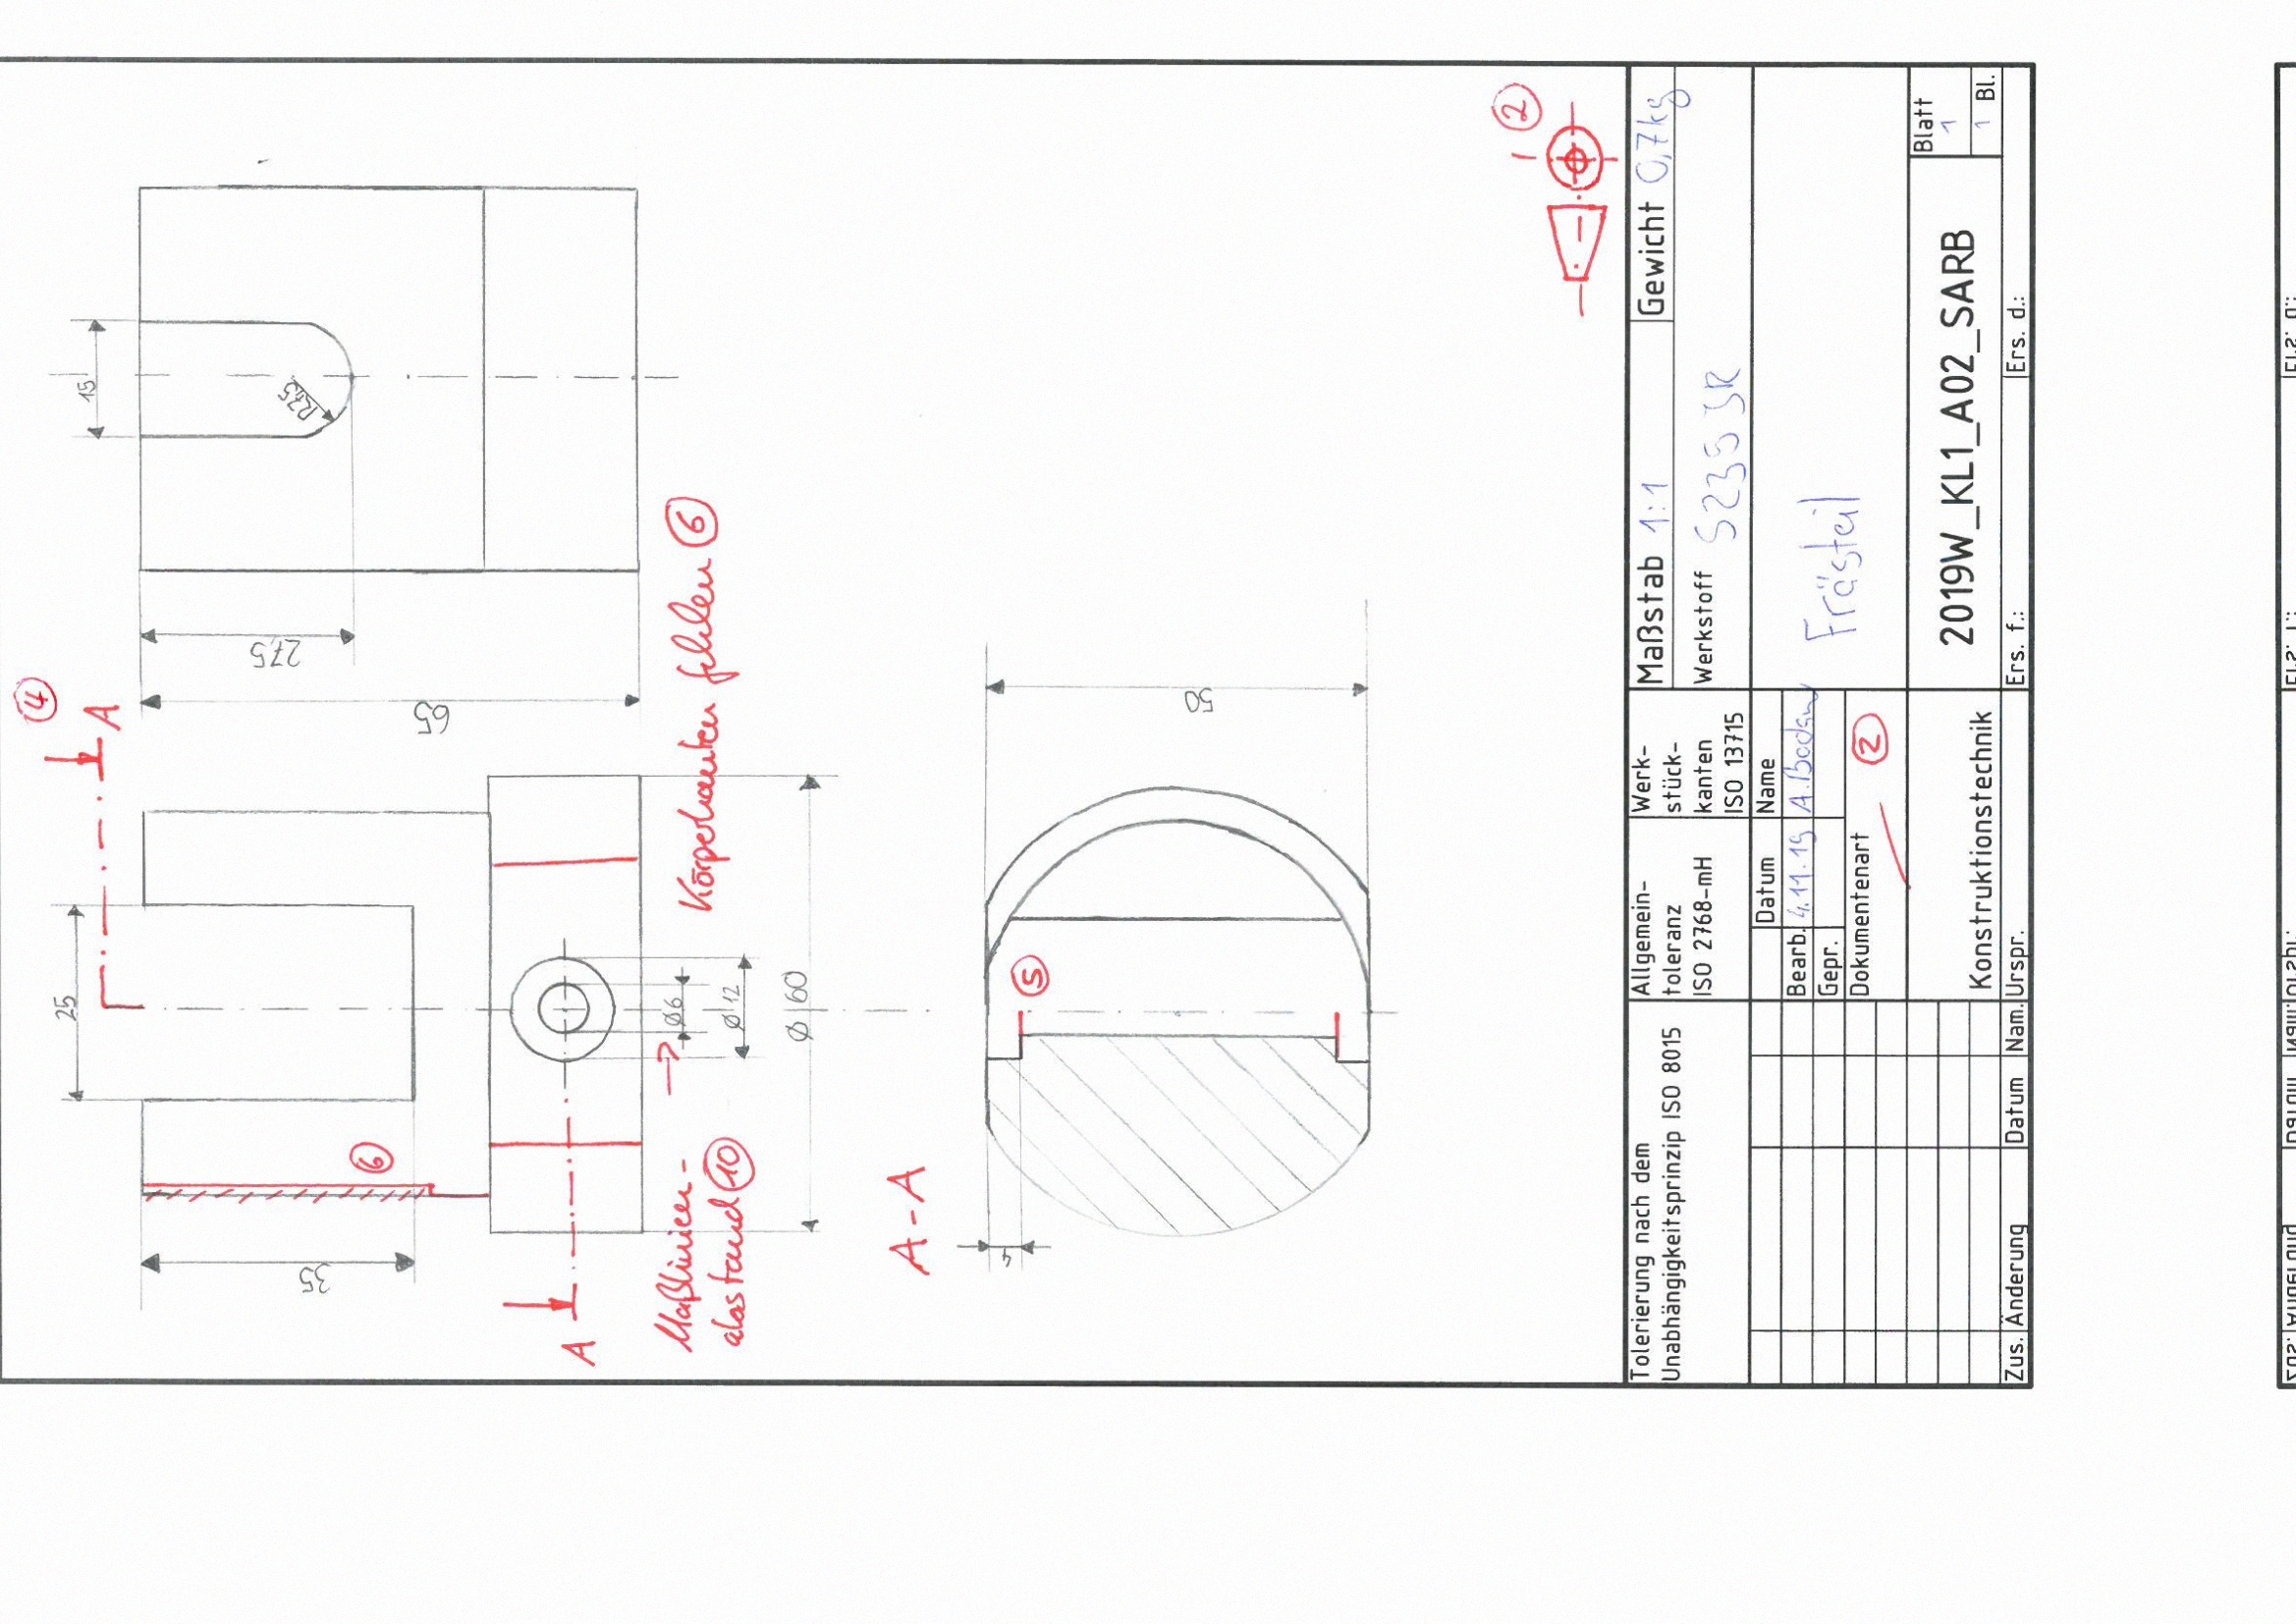 ④
A
25
15
R7,5
27,5
65
35
⑥
Ø6
Ø12
Ø60
A
Maßlinien-
abstand ⑩
Körperkanten fehlen ⑥
A-A
⑤
4
50
②
1
Tolerierung nach dem
Unabhängigkeitsprinzip ISO 8015
Allgemein-
toleranz
ISO 2768-mH
Werk-
stück-
kanten
ISO 13715
Maßstab 1:1
Gewicht 0,7kg
Werkstoff S235JR
Datum
Name
Bearb. 4.11.19
Gepr.
Dokumentenart
②
Frästeil
Konstruktionstechnik
2019W_KL1_A02_SARB
Blatt
1
1 Bl.
Zus. Änderung
Datum
Nam.
Urspr.
Ers. f.:
Ers. d.: